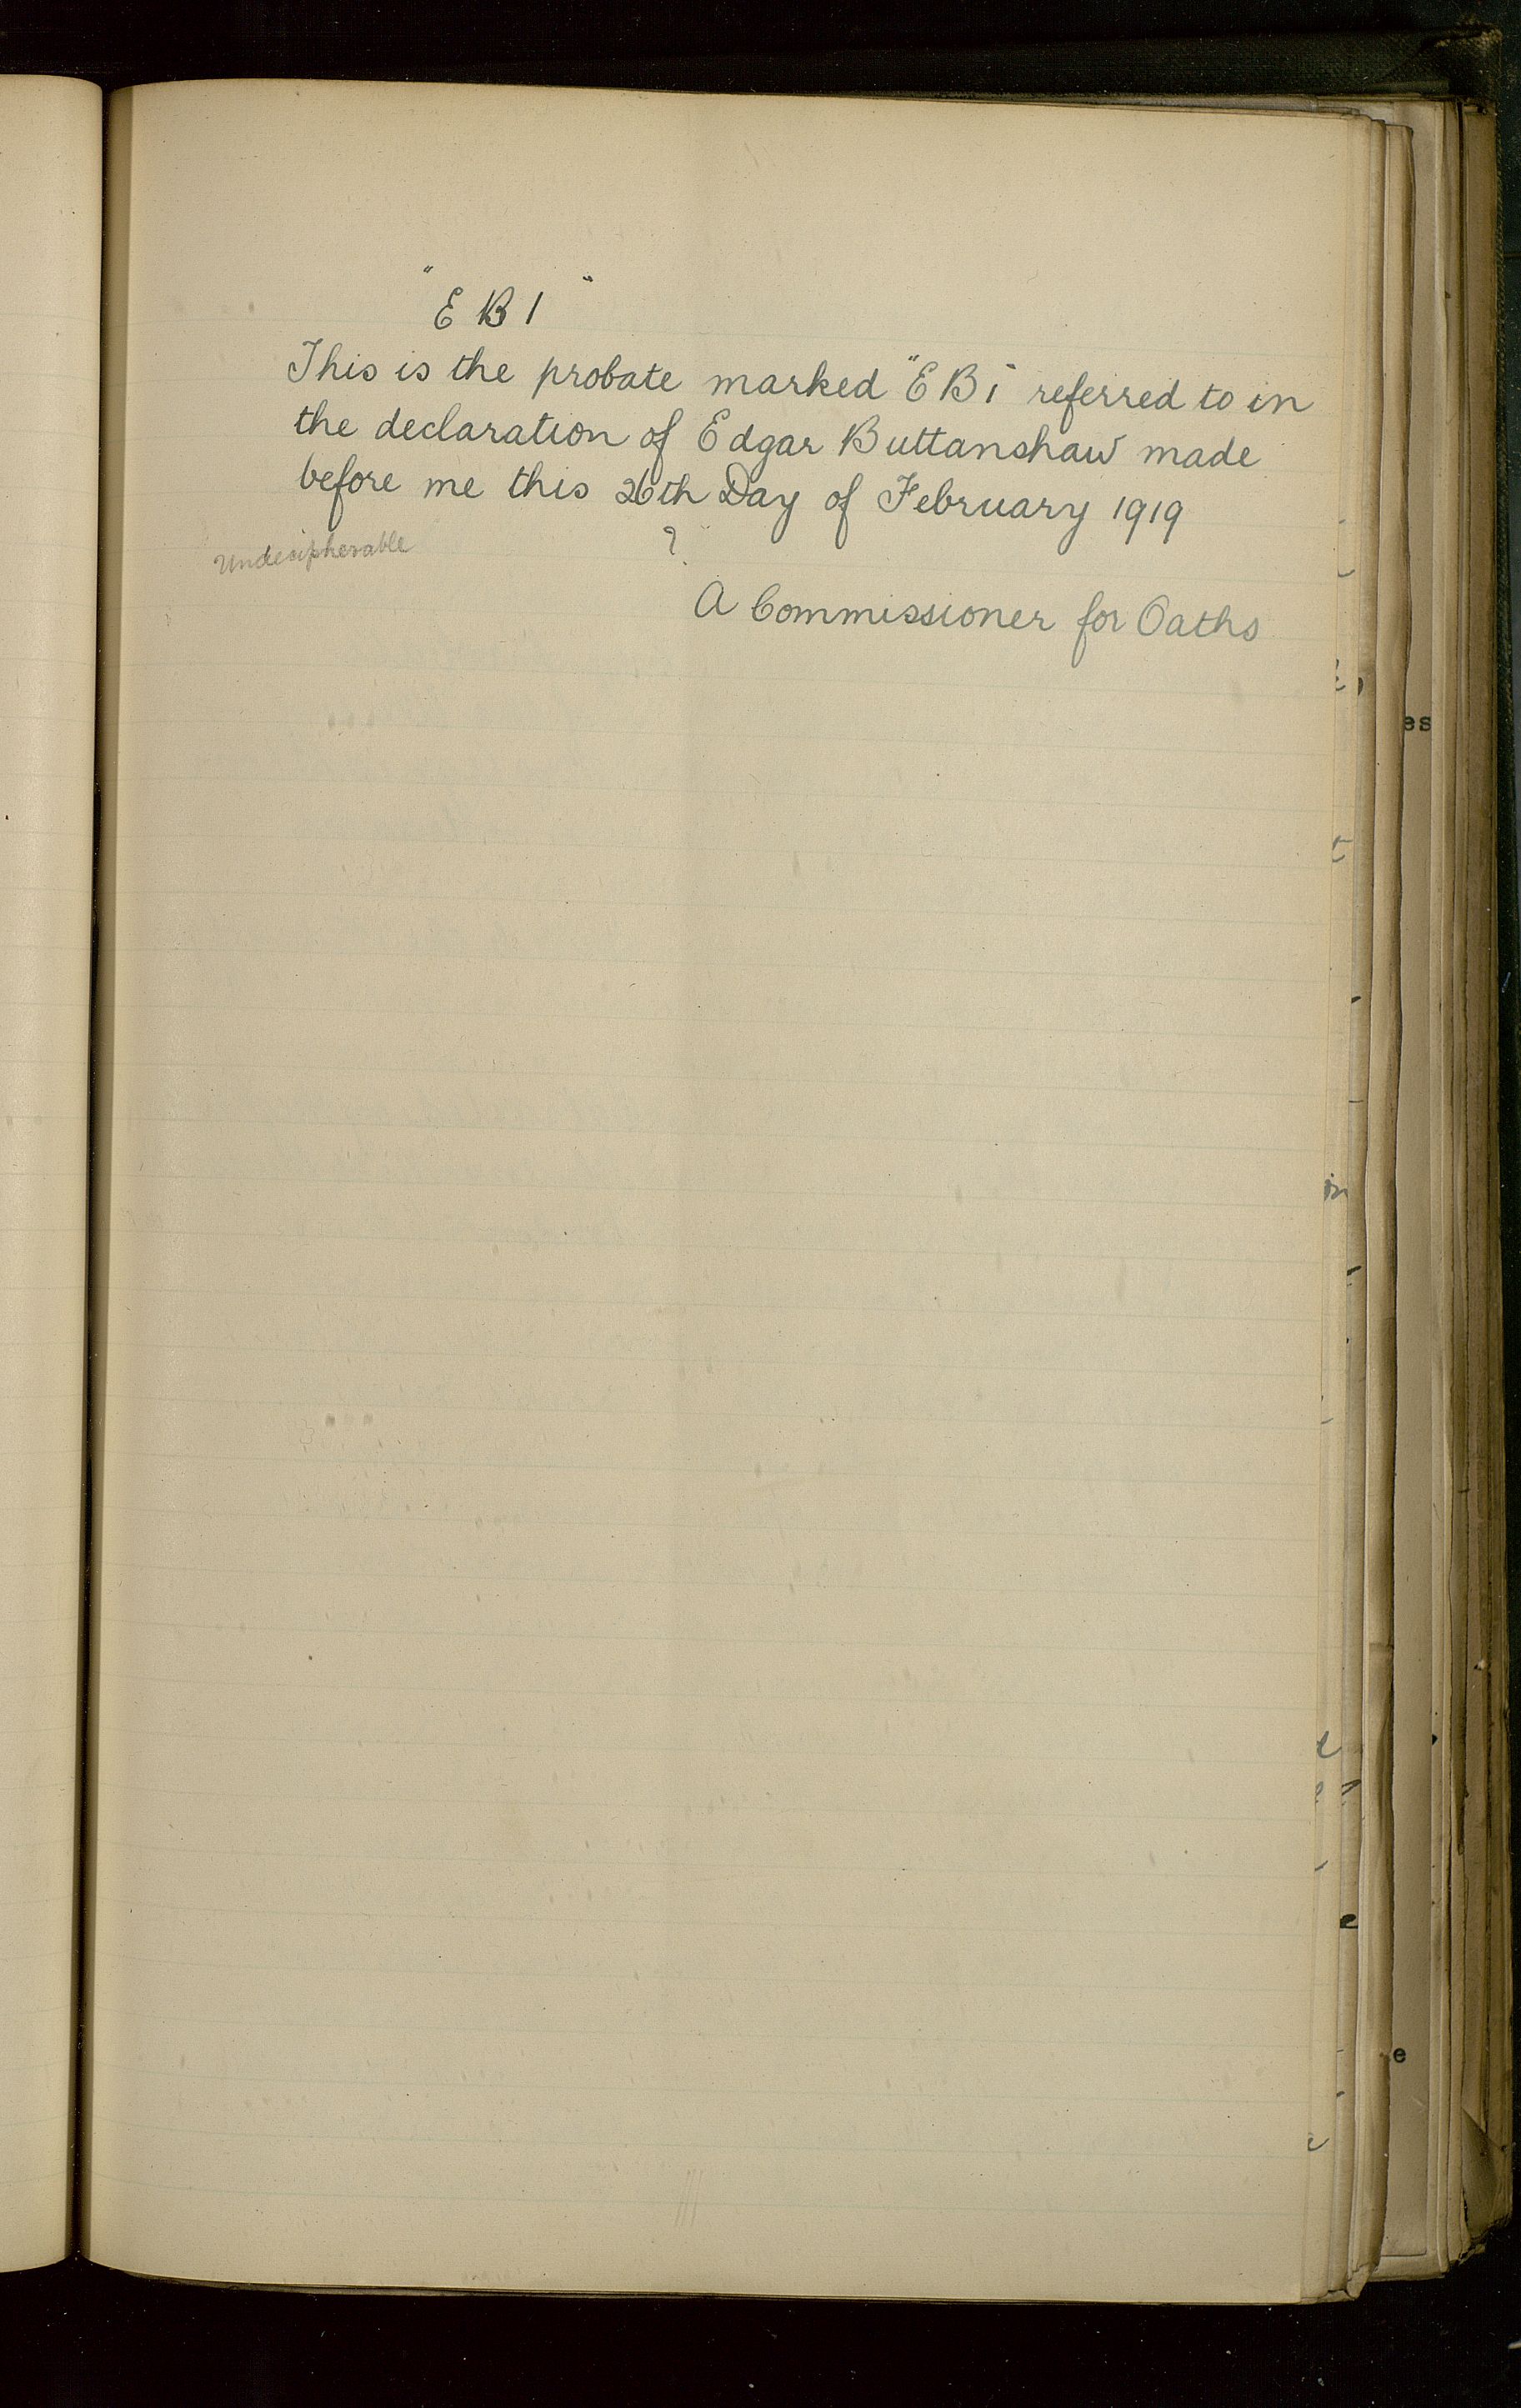 "E B 1"
This is the probate marked "E B 1" referred to in
the declaration of Edgar Buttanshaw made
before me this 26th Day of February 1919
Undecipherable ?
A Commissioner for Oaths
es
t
in
e
e
e